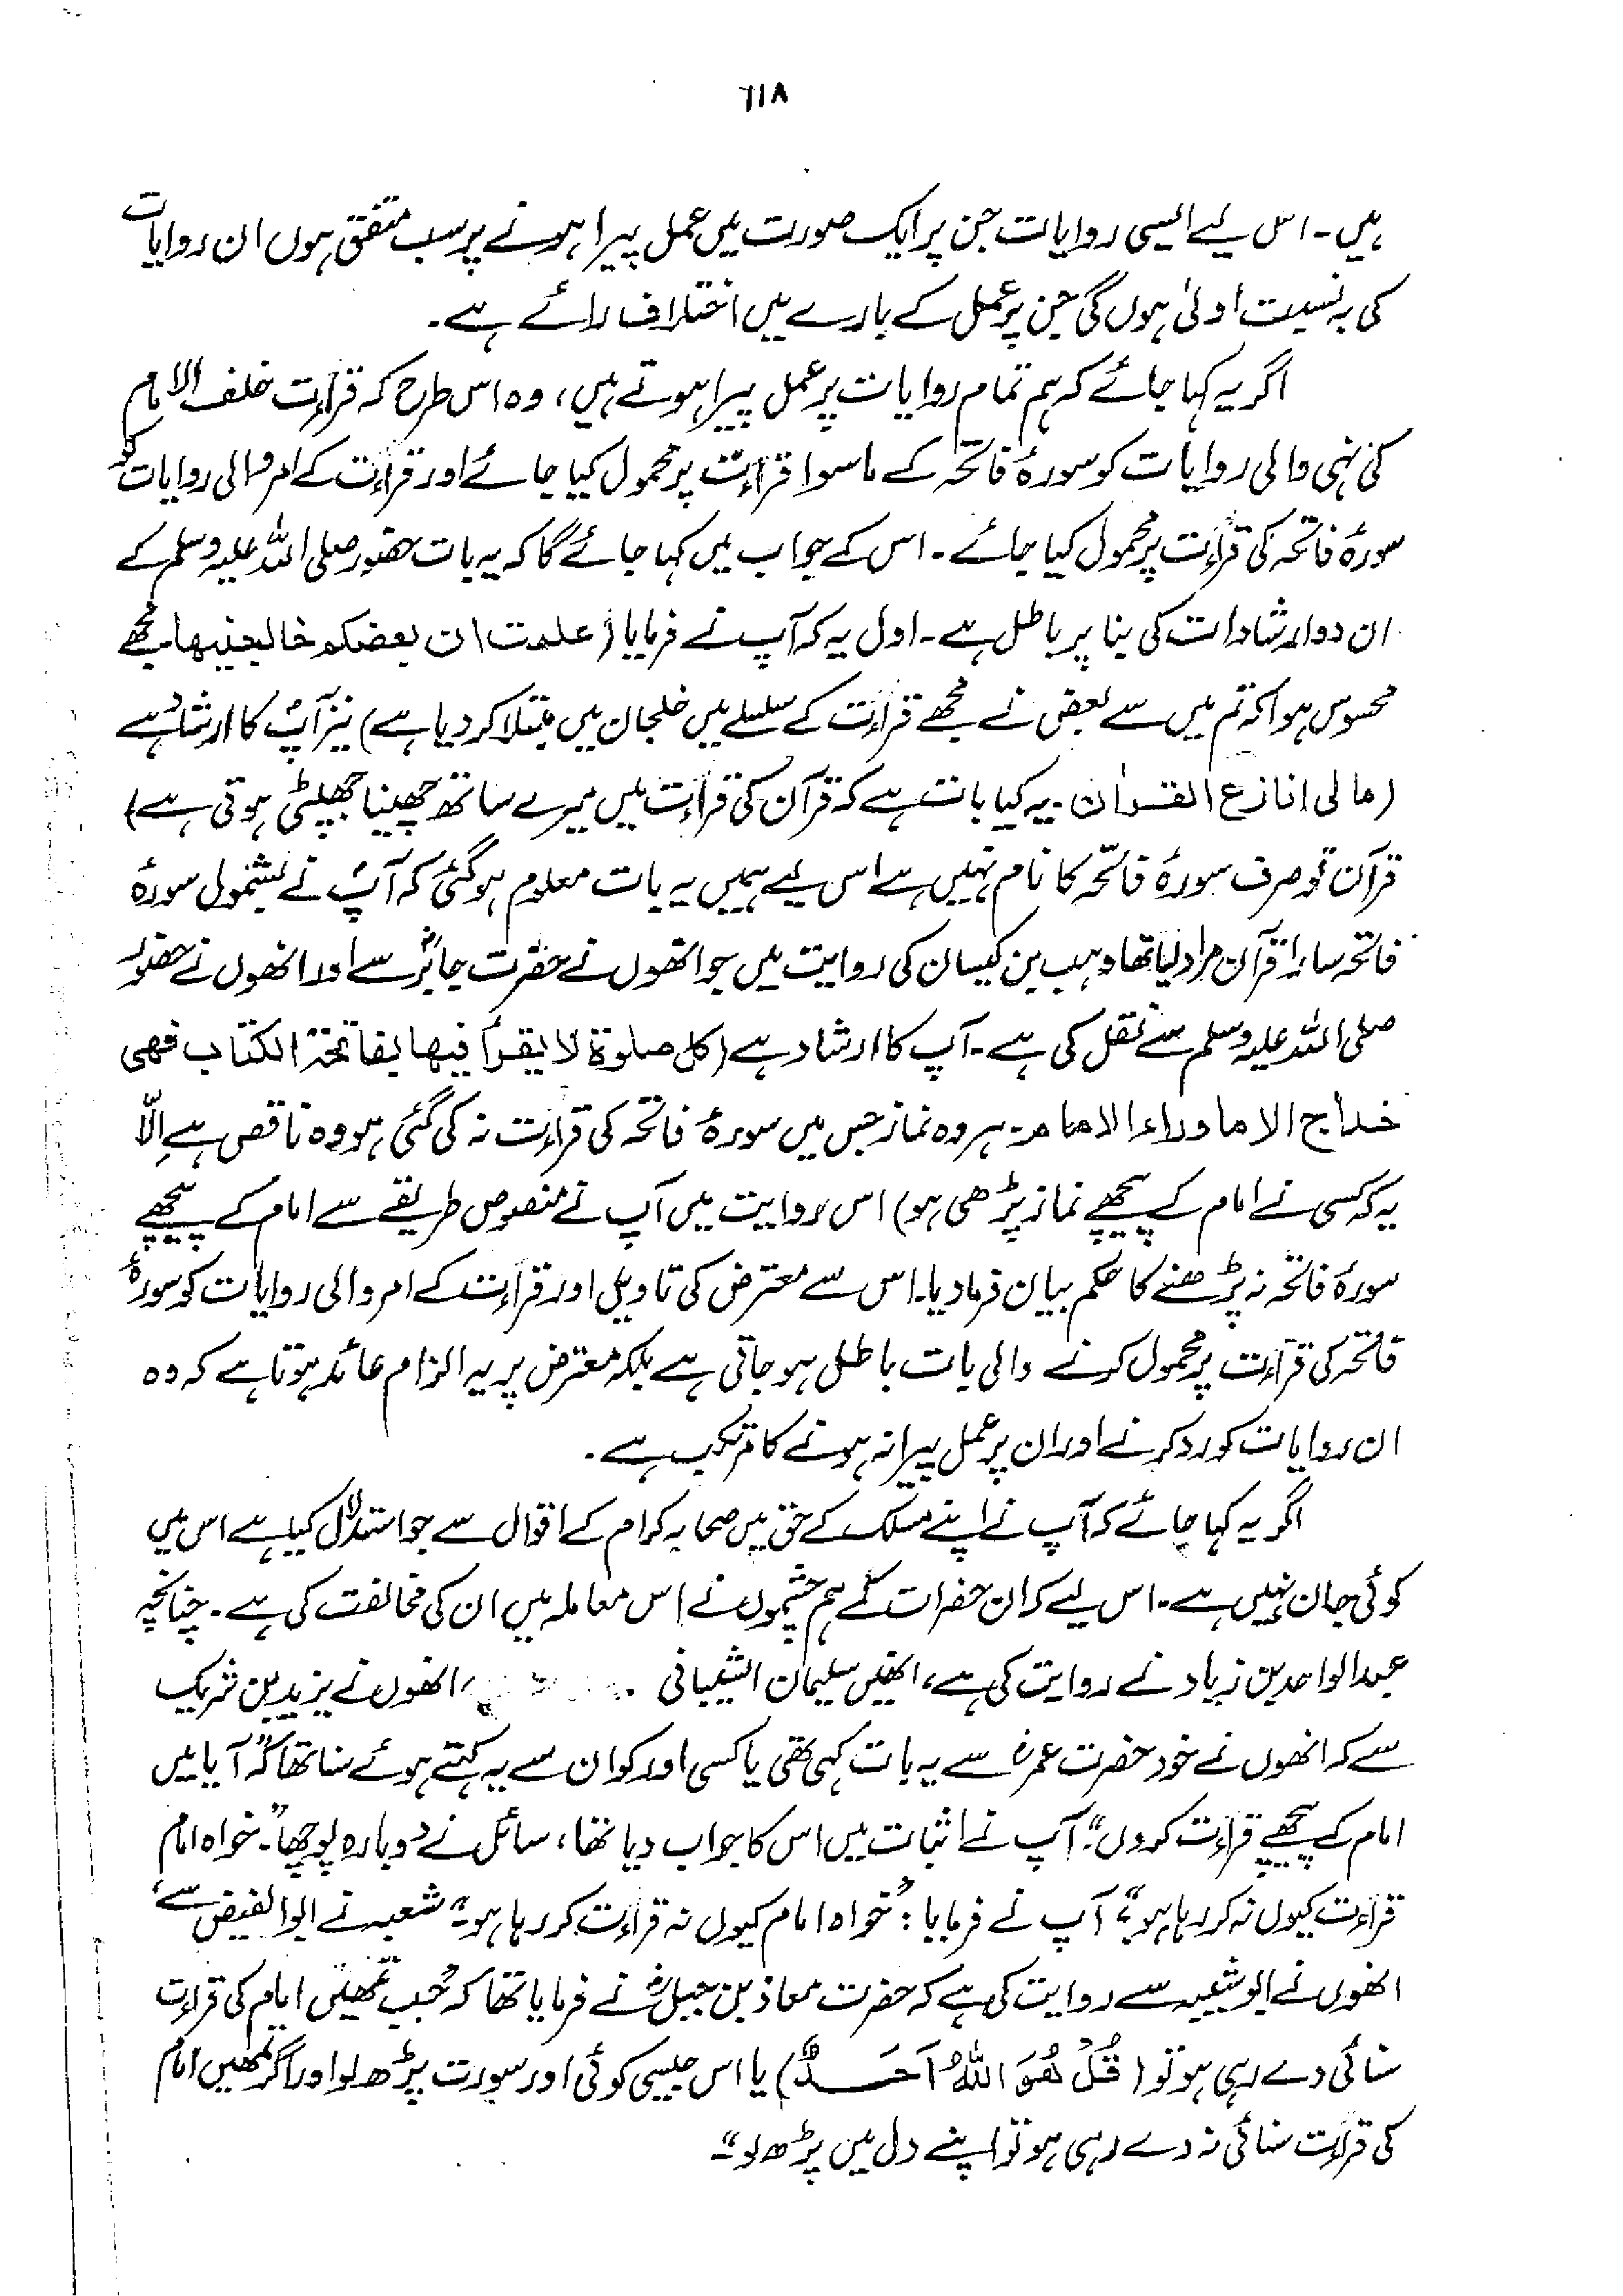 ٦١٨
ہیں۔ اس لیے ایسی روایات جن پر ایک صورت میں عمل پیرا ہونے پر سب متفق ہوں ان روایات
کی بہ نسبت اولیٰ ہوں گی جن پر عمل کے بارے میں اختلاف رائے ہے۔
اگر یہ کہا جائے کہ ہم تمام روایات پر عمل پیرا ہوتے ہیں، وہ اس طرح کہ قراءت خلف الامام
کی نہی والی روایات کو سورۂ فاتحہ کے ماسوا قراءت پر محمول کیا جائے اور قراءت کے امر والی روایات کو
سورۂ فاتحہ کی قراءت پر محمول کیا جائے۔ اس کے جواب میں کہا جائے گا کہ یہ بات حضور صلی اللہ علیہ وسلم کے
ان دو ارشادات کی بنا پر باطل ہے۔ اول یہ کہ آپ نے فرمایا (علمت ان بعضکم خالجنیھا مجھے
محسوس ہوا کہ تم میں سے بعض نے مجھے قراءت کے سلسلے میں خلجان میں مبتلا کر دیا ہے) نیز آپؐ کا ارشاد ہے
(مالی انازع القراٰن۔ یہ کیا بات ہے کہ قرآن کی قراءت میں میرے ساتھ چھینا جھپٹی ہوتی ہے)
قرآن تو صرف سورۂ فاتحہ کا نام نہیں ہے اس لیے ہمیں یہ بات معلوم ہو گئی کہ آپؐ نے بشمول سورۂ
فاتحہ سارا قرآن مراد لیا تھا وہب بن کیسان کی روایت میں جو انھوں نے حضرت جابرؓ سے اور انھوں نے حضور
صلی اللہ علیہ وسلم سے نقل کی ہے۔ آپ کا ارشاد ہے (کل صلوۃ لا یقرأ فیھا بفاتحۃ الکتاب فھی
خداج الا ما وراء الامام۔ ہر وہ نماز جس میں سورۂ فاتحہ کی قراءت نہ کی گئی ہو وہ ناقص ہے اِلّا
یہ کہ کسی نے امام کے پیچھے نماز پڑھی ہو) اس روایت میں آپ نے منصوص طریقے سے امام کے پیچھے
سورۂ فاتحہ نہ پڑھنے کا حکم بیان فرما دیا۔ اس سے معترض کی تاویل اور قراءت کے امر والی روایات کو سورۂ
فاتحہ کی قراءت پر محمول کرنے والی بات باطل ہو جاتی ہے بلکہ معترض پر یہ الزام عائد ہوتا ہے کہ وہ
ان روایات کو رد کرنے اور ان پر عمل پیرا نہ ہونے کا مرتکب ہے۔
اگر یہ کہا جائے کہ آپ نے اپنے مسلک کے حق میں صحابہ کرام کے اقوال سے جو استدلال کیا ہے اس میں
کوئی جان نہیں ہے۔ اس لیے کہ ان حضرات کے ہم چشموں نے اس معاملہ میں ان کی مخالفت کی ہے۔ چنانچہ
عبدالواحد بن زیاد نے روایت کی ہے، انھیں سلیمان الشیبانی ، انھوں نے یزید بن شریک
سے کہ انھوں نے خود حضرت عمرؓ سے یہ بات کہی تھی یا کسی اور کو ان سے یہ کہتے ہوئے سنا تھا کہ "آیا میں
امام کے پیچھے قراءت کروں"؟ آپ نے اثبات میں اس کا جواب دیا تھا، سائل نے دوبارہ پوچھا"۔ خواہ امام
قراءت کیوں نہ کر رہا ہو"؟ آپ نے فرمایا: "خواہ امام کیوں نہ قراءت کر رہا ہو"۔ شعبہ نے ابوالفیض سے،
انھوں نے ابو شیبہ سے روایت کی ہے کہ حضرت معاذ بن جبلؓ نے فرمایا تھا کہ "جب تمھیں امام کی قراءت
سنائی دے رہی ہو تو (قُلْ ھُوَ اللّٰہُ اَحَـــدٌ) یا اس جیسی کوئی اور سورت پڑھ لو اور اگر تمھیں امام
کی قراءت سنائی نہ دے رہی ہو تو اپنے دل میں پڑھ لو"۔